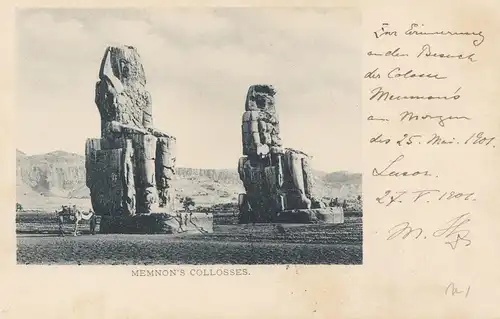 Zur Erinnerung
an den Besuch
der Colosse
Memnon's
am Morgen
des 25. Mai. 1901.
Luxor.
27. V. 1901.
MEMNON'S COLLOSSES.